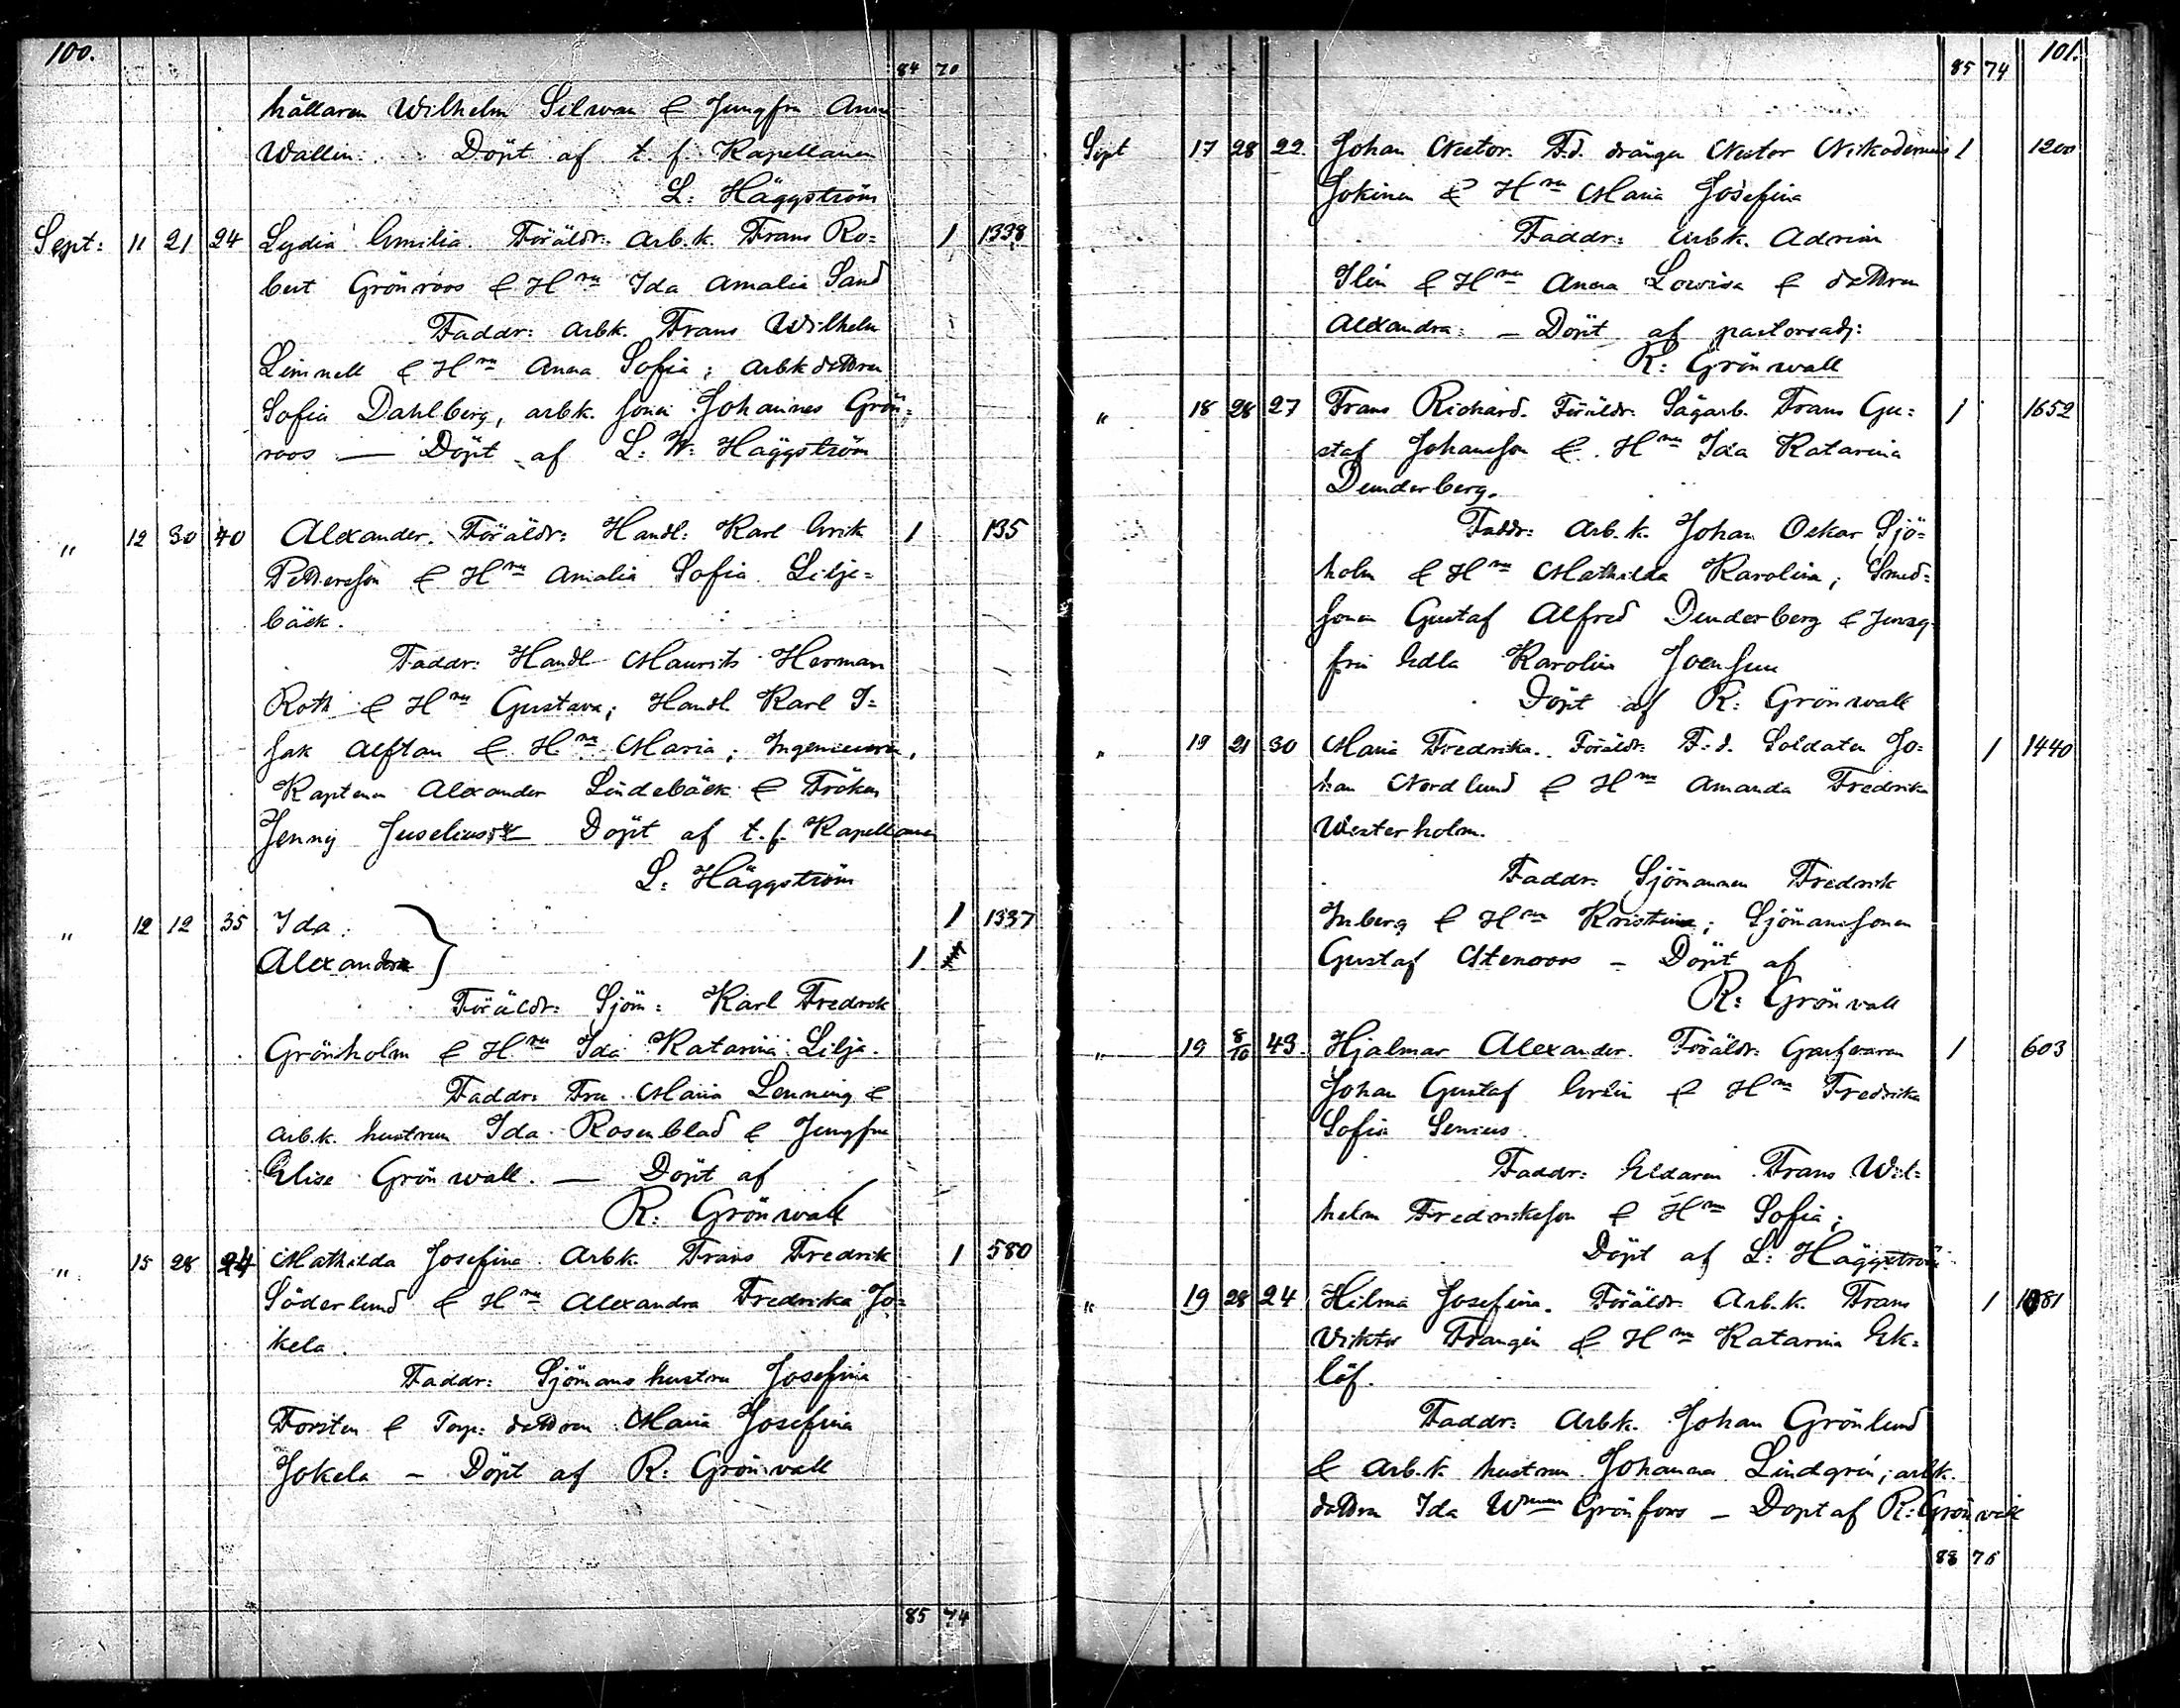 100.
84 70
hållaren Wilhelm Silwan & Jungfru Anna
Wallin. Döpt af t. f. Kapellanen
L: Häggström
Sept: 11 21 24 Lydia Emilia. Föräldr: Arb.k. Frans Ro= 1 1338
bert Grönroos & Hru Ida Amalia Sand
Faddr: Arbk. Frans Wilhelm
Linnell & Hru Anna Sofia; Arbk dottren
Sofia Dahlberg, arbk. sonen Johannes Grön=
roos — Döpt af L: W: Häggström
" 12 30 40 Alexander. Föräldr: Handl: Karl Erik 1 135
Pettersson & Hru Amalia Sofia Lilje=
bäck.
Faddr: Handl Maurits Herman
Roth & Hru Gustava; Handl Karl I=
sak Alftan & Hru Maria; Ingenieuren,
Kaptenen Alexander Lindebäck & Fröken
Jenny Juselius Döpt af t. f. Kapellanen
L: Häggström
" 12 12 35 Ida. 1 1337
Alexander 1
Föräldr: Sjöm: Karl Fredrik
Grönholm & Hru Ida Katarina Lilja.
Faddr: Fru Maria Lenning &
arb.k. hustrun Ida Rosenblad & Jungfru
Elise Grönwall. — Döpt af
R: Grönwall
" 15 28 24 Mathilda Josefina. Arbk. Frans Fredrik 1 580
Söderlund & Hru Alexandra Fredrika Jo=
kela.
Faddr: Sjömans hustru Josefina
Forsten & Torp: dottren Maria Josefina
Jokela — Döpt af R: Grönwall
85 74
101.
85 74
Sept 17 28 22. Johan Nestor. F.d. drängen Nestor Nikodemus 1 1200
Jokinen & Hru Maria Josefina
Faddr: Arbk. Adrian
Ilén & Hru Anna Lowisa & dottren
Alexandra: — Döpt af pastorsadj:
R: Grönwall
" 18 28 27 Frans Richard. Föräldr: Sågarb. Frans Gu= 1 1652
staf Johansson & Hru Ida Katarina
Dunderberg.
Faddr: Arb.k. Johan Oskar Sjö=
holm & Hru Mathilda Karolina; Smed=
sonen Gustaf Alfred Dunderberg & Jung=
fru Edla Karolina Joensuu
Döpt af R: Grönwall
" 19 21 30 Maria Fredrika. Föräldr: F.d. Soldaten Jo= 1 1440
han Nordlund & Hru Amanda Fredrika
Westerholm.
Faddr: Sjömannen Fredrik
Inberg & Hru Kristina; Sjömanssonen
Gustaf Stenroos — Döpt af
R: Grönwall
" 19 8/10 43 Hjalmar Alexander. Föräldr: Garfvaren 1 603
Johan Gustaf Erlin & Hru Fredrika
Sofia Senius.
Faddr: Eldaren Frans Wil=
helm Fredriksson & Hru Sofia;
Döpt af L: Häggström
" 19 28 24 Hilma Josefina. Föräldr: Arb.k. Frans 1 1081
Viktor Frangén & Hru Katarina Ek=
löf.
Faddr: Arbk. Johan Grönlund
& Arb.k hustrun Johanna Lindgrén; arbk.
dottren Ida Grönfors — Döpt af R: Grönwall
88 75